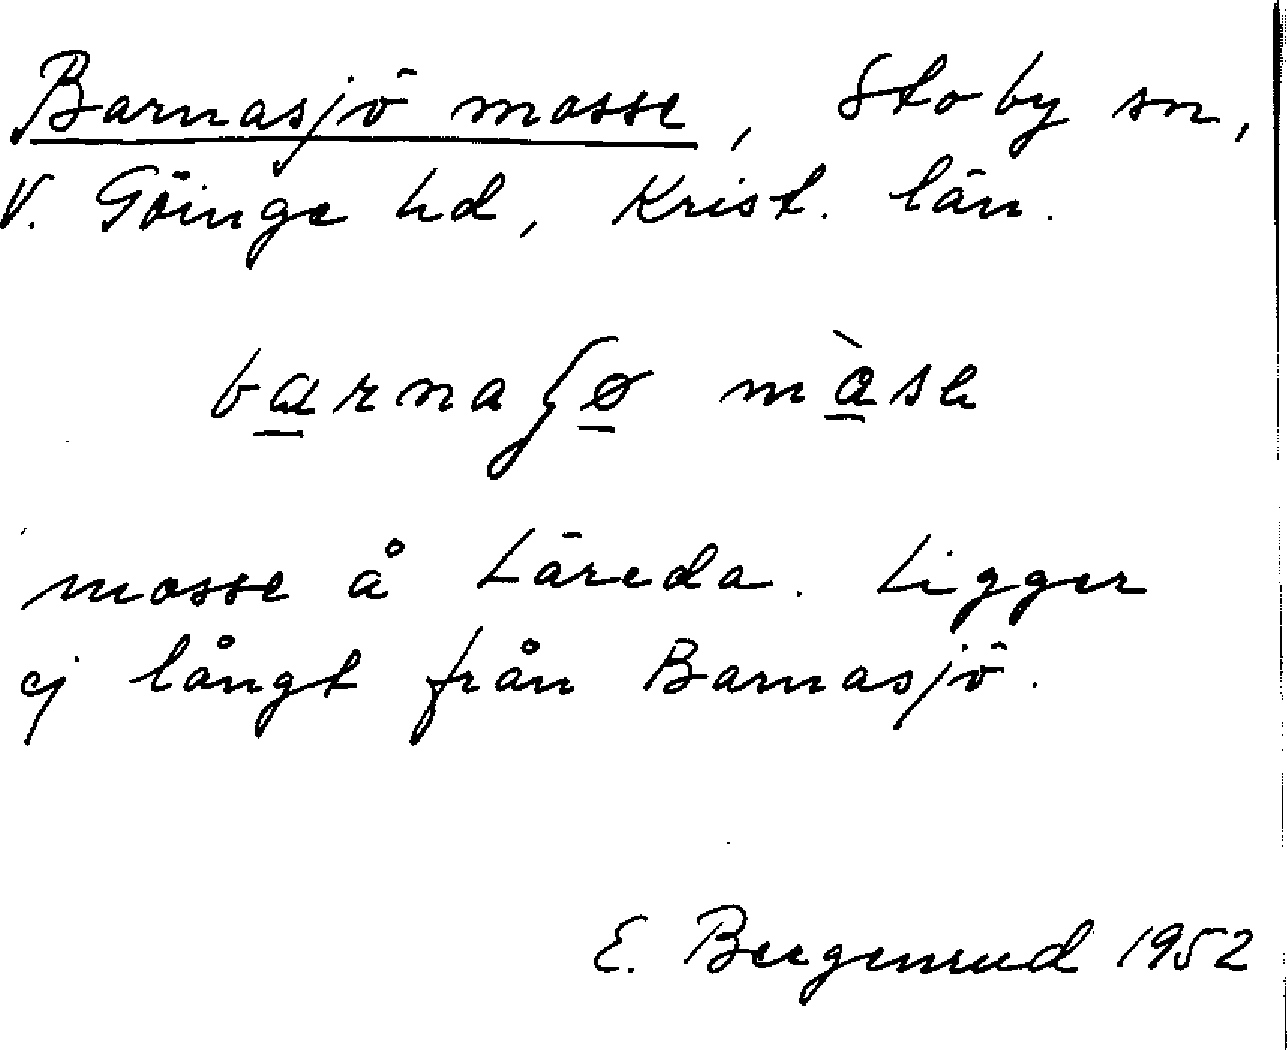 Barnasjö mosse, Stoby sn,
V. Göinge hd, Krist. län.
barnaʃø màsa
mosse å Läreda. Ligger
ej långt från Barnasjö.
E. Bergenrud 1952